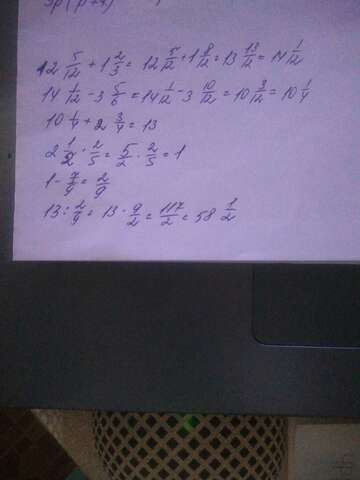 3p(p+4)
12 5/12 + 1 2/3 = 12 5/12 + 1 8/12 = 13 13/12 = 14 1/12
14 1/12 - 3 5/6 = 14 1/12 - 3 10/12 = 10 3/12 = 10 1/4
10 1/4 + 2 3/4 = 13
2 1/2 · 2/5 = 5/2 · 2/5 = 1
1 - 7/9 = 2/9
13 : 2/9 = 13 · 9/2 = 117/2 = 58 1/2